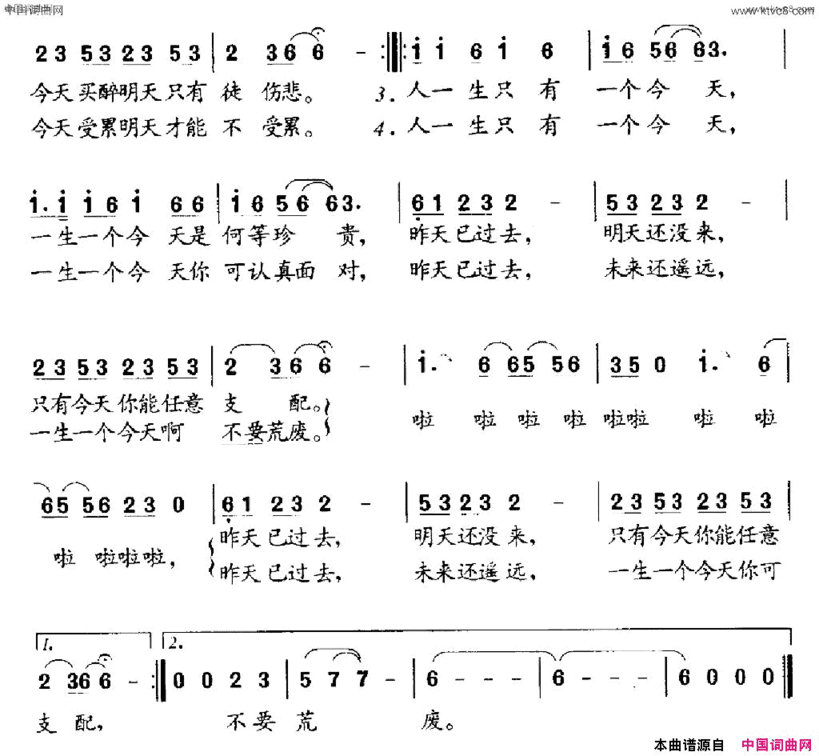 中国词曲网
2 3 5 3 2 3 5 3 | 2 3 6 6 - :‖: i i 6 i 6 | i 6 5 6 6 3. |
今天买醉明天只有 徒 伤悲。 3. 人一生只有 一个今天,
今天受累明天才能 不 受累。 4. 人一生只有 一个今天,
i. i i 6 i 6 6 | i 6 5 6 6 3. | 6 1 2 3 2 - | 5 3 2 3 2 - |
一生一个今 天是 何等珍 贵, 昨天已过去, 明天还没来,
一生一个今 天你 可认真面 对, 昨天已过去, 未来还遥远,
2 3 5 3 2 3 5 3 | 2 3 6 6 - | i. 6 6 5 5 6 | 3 5 0 i. 6 |
只有今天你能任意 支 配。 啦 啦 啦 啦 啦啦 啦 啦
一生一个今天啊 不要荒废。
6 5 5 6 2 3 0 | 6 1 2 3 2 - | 5 3 2 3 2 - | 2 3 5 3 2 3 5 3 |
啦 啦啦啦, 昨天已过去, 明天还没来, 只有今天你能任意
昨天已过去, 未来还遥远, 一生一个今天你可
1. 2.
2 3 6 6 - :‖ 0 0 2 3 | 5 7 7 - | 6 - - - | 6 - - - | 6 0 0 0 ‖
支 配, 不要荒 废。
本曲谱源自 中国词曲网